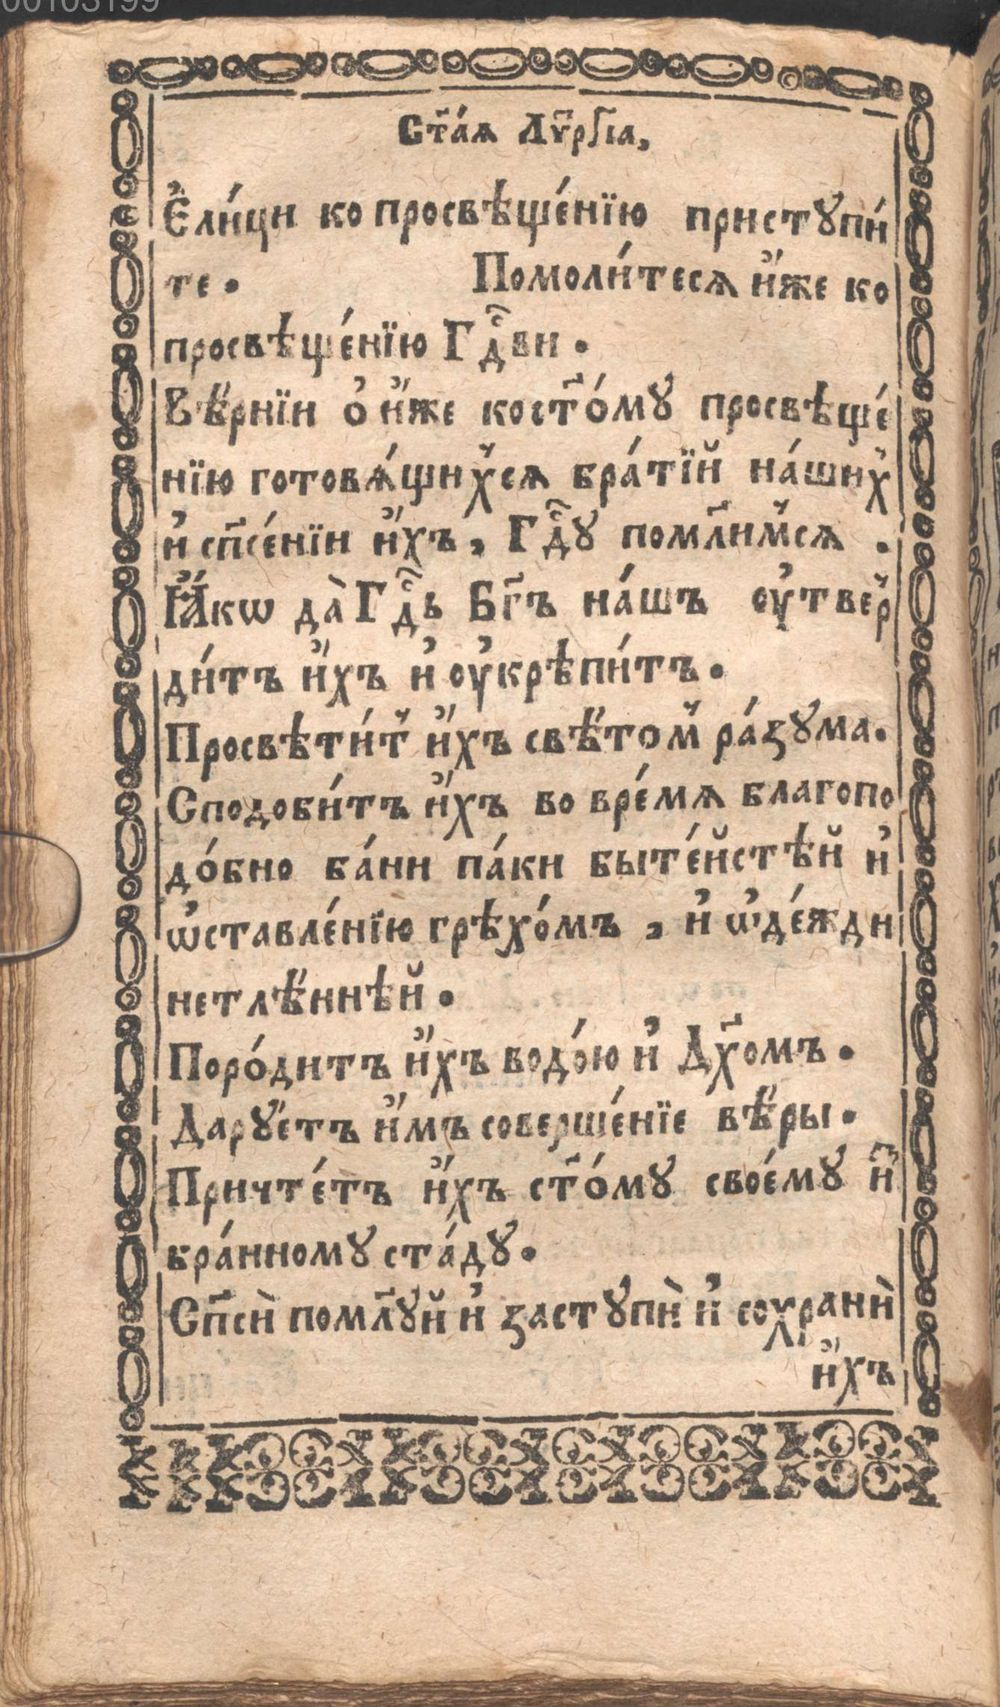 00103199
Ст҃а́я Лѵ҃рГіа,
Е҆ли́ци ко просвѣще́нїю пристꙋпи́
те. Помоли́теся и҆́же ко
просвѣще́нїю Гдⷭ҇ви.
Вѣ́рнїи о҆ и҆́же кост҃о́мꙋ просвѣще́
нїю готовѧ́щихсѧ бра́тїй на́ших
и҆ сп҃се́нїи и҆́хъ, Гдⷭ҇ꙋ помл҃имсѧ.
Ꙗ҆́кѡ да̀ Гдⷭ҇ь Бг҃ъ на́шъ оу҆твер
ди́тъ и҆́хъ и҆ оу҆крѣпи́тъ.
Просвѣти́т и҆́хъ свѣ́том ра́зꙋма.
Сподоби́тъ и҆́хъ во вре́мѧ благопо
до́бно ба́ни па́ки быте́йстѣй и҆
ѡ҆ставле́нїю грѣхо́мъ, и҆ ѡ҆де́жди
нетлѣ́ннѣй.
Поро́дитъ и҆́хъ водо́ю и҆ Дх҃омъ.
Дарꙋ́етъ и҆́мъ соверше́нїе вѣ́ры.
Причте́тъ и҆́хъ ст҃о́мꙋ своє́мꙋ и҆
бра́нномꙋ ста́дꙋ.
Сп҃сѝ помл҃ꙋй и҆ застꙋпѝ и҆ сохранѝ
и҆́хъ